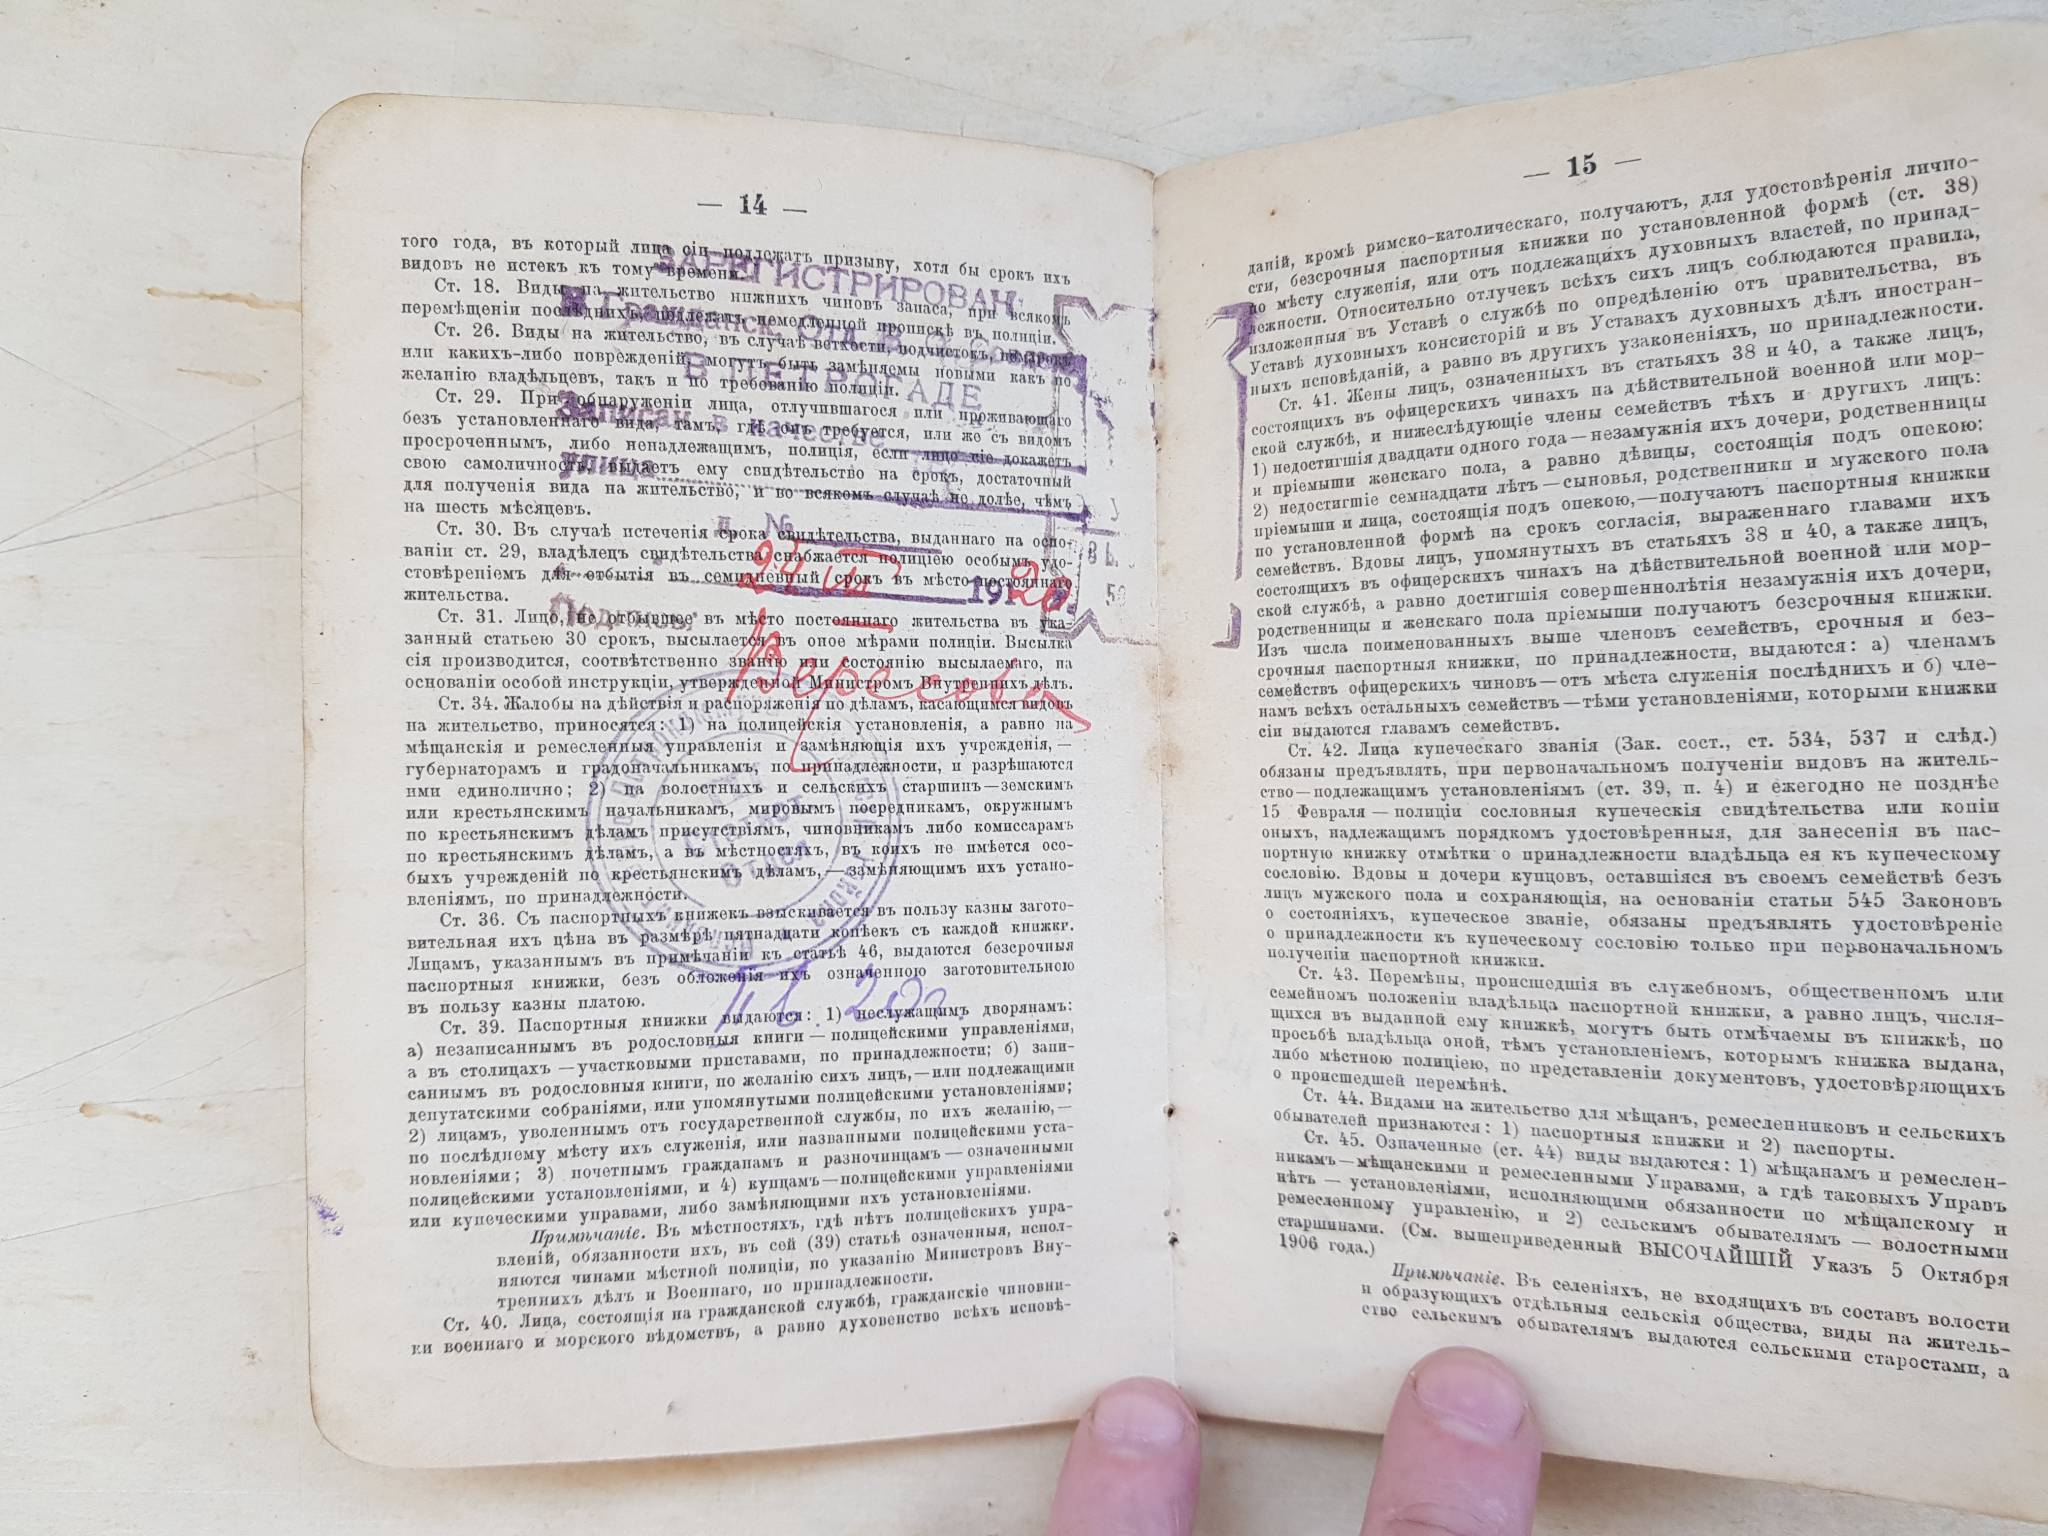 — 14 —
того года, въ который лица сіи подлежатъ призыву, хотя бы срокъ ихъ
видовъ не истек къ тому времени.
Ст. 18. Виды на жительство нижнихъ чиновъ запаса, при всякомъ
перемѣщеніи послѣднихъ, подлежатъ немедленной пропискѣ въ полиціи.
Ст. 26. Виды на жительство, въ случаѣ ветхости, подчистокъ, помарокъ
или какихъ-либо поврежденій, могутъ быть замѣняемы новыми какъ по
желанію владѣльцевъ, такъ и по требованію полиціи.
Ст. 29. При обнаруженіи лица, отлучившагося или проживающаго
безъ установленнаго вида, тамъ, гдѣ онъ требуется, или же съ видомъ
просроченнымъ, либо ненадлежащимъ, полиція, если лицо сіе докажетъ
свою самоличность, выдаетъ ему свидѣтельство на срокъ, достаточный
для полученія вида на жительство, и во всякомъ случаѣ не долѣе, чѣмъ
на шесть мѣсяцевъ.
Ст. 30. Въ случаѣ истеченія срока свидѣтельства, выданнаго на осно-
ваніи ст. 29, владѣлецъ свидѣтельства снабжается полиціею особымъ удо-
стовѣреніемъ для отбытія въ семидневный срокъ въ мѣсто постояннаго
жительства.
Ст. 31. Лицо, не отбывшее въ мѣсто постояннаго жительства въ ука-
занный статьею 30 срокъ, высылается въ оное мѣрами полиціи. Высылка
сія производится, соотвѣтственно званію или состоянію высылаемаго, на
основаніи особой инструкціи, утвержденной Министромъ Внутреннихъ дѣлъ.
Ст. 34. Жалобы на дѣйствія и распоряженія по дѣламъ, касающимся видовъ
на жительство, приносятся: 1) на полицейскія установленія, а равно на
мѣщанскія и ремесленныя управленія и замѣняющія ихъ учрежденія, —
губернаторамъ и градоначальникамъ, по принадлежности, и разрѣшаются
ими единолично; 2) на волостныхъ и сельскихъ старшинъ—земскимъ
или крестьянскимъ начальникамъ, мировымъ посредникамъ, окружнымъ
по крестьянскимъ дѣламъ присутствіямъ, чиновникамъ либо комиссарамъ
по крестьянскимъ дѣламъ, а въ мѣстностяхъ, въ коихъ не имѣется осо-
быхъ учрежденій по крестьянскимъ дѣламъ,—замѣняющимъ ихъ устано-
вленіямъ, по принадлежности.
Ст. 36. Съ паспортныхъ книжекъ взыскивается въ пользу казны загото-
вительная ихъ цѣна въ размѣрѣ пятнадцати копѣекъ съ каждой книжки.
Лицамъ, указаннымъ въ примѣчаніи къ статьѣ 46, выдаются безсрочныя
паспортныя книжки, безъ обложенія ихъ означенною заготовительною
въ пользу казны платою.
Ст. 39. Паспортныя книжки выдаются: 1) неслужащимъ дворянамъ:
а) незаписаннымъ въ родословныя книги — полицейскими управленіями,
а въ столицахъ — участковыми приставами, по принадлежности; б) запи-
саннымъ въ родословныя книги, по желанію сихъ лицъ,—или подлежащими
депутатскими собраніями, или упомянутыми полицейскими установленіями;
2) лицамъ, уволеннымъ отъ государственной службы, по ихъ желанію,—
по послѣднему мѣсту ихъ служенія, или названными полицейскими уста-
новленіями; 3) почетнымъ гражданамъ и разночинцамъ—означенными
полицейскими установленіями, и 4) купцамъ—полицейскими управленіями
или купеческими управами, либо замѣняющими ихъ установленіями.
Примѣчаніе. Въ мѣстностяхъ, гдѣ нѣтъ полицейскихъ упра-
вленій, обязанности ихъ, въ сей (39) статьѣ означенныя, испол-
няются чинами мѣстной полиціи, по указанію Министровъ Вну-
треннихъ дѣлъ и Военнаго, по принадлежности.
Ст. 40. Лица, состоящія на гражданской службѣ, гражданскіе чиновни-
ки военнаго и морского вѣдомствъ, а равно духовенство всѣхъ исповѣ-
ЗАРЕГИСТРИРОВАН
В Гражданск. Отд.
В ПЕТРОГРАДЕ
Записан в качестве
улица
д. №
24 III 1920
Подпись:
Вересова
— 15 —
даній, кромѣ римско-католическаго, получаютъ, для удостовѣренія лично-
сти, безсрочныя паспортныя книжки по установленной формѣ (ст. 38)
по мѣсту служенія, или отъ подлежащихъ духовныхъ властей, по принад-
лежности. Относительно отлучекъ всѣхъ сихъ лицъ соблюдаются правила,
изложенныя въ Уставѣ о службѣ по опредѣленію отъ правительства, въ
Уставѣ духовныхъ консисторій и въ Уставахъ духовныхъ дѣлъ иностран-
ныхъ исповѣданій, а равно въ другихъ узаконеніяхъ, по принадлежности.
Ст. 41. Жены лицъ, означенныхъ въ статьяхъ 38 и 40, а также лицъ,
состоящихъ въ офицерскихъ чинахъ на дѣйствительной военной или мор-
ской службѣ, и нижеслѣдующіе члены семействъ тѣхъ и другихъ лицъ:
1) недостигшія двадцати одного года—незамужнія ихъ дочери, родственницы
и пріемыши женскаго пола, а равно дѣвицы, состоящія подъ опекою;
2) недостигшіе семнадцати лѣтъ—сыновья, родственники и мужского пола
пріемыши и лица, состоящія подъ опекою,—получаютъ паспортныя книжки
по установленной формѣ на срокъ согласія, выраженнаго главами ихъ
семействъ. Вдовы лицъ, упомянутыхъ въ статьяхъ 38 и 40, а также лицъ,
состоящихъ въ офицерскихъ чинахъ на дѣйствительной военной или мор-
ской службѣ, а равно достигшія совершеннолѣтія незамужнія ихъ дочери,
родственницы и женскаго пола пріемыши получаютъ безсрочныя книжки.
Изъ числа поименованныхъ выше членовъ семействъ, срочныя и без-
срочныя паспортныя книжки, по принадлежности, выдаются: а) членамъ
семействъ офицерскихъ чиновъ—отъ мѣста служенія послѣднихъ и б) чле-
намъ всѣхъ остальныхъ семействъ—тѣми установленіями, которыми книжки
сіи выдаются главамъ семействъ.
Ст. 42. Лица купеческаго званія (Зак. сост., ст. 534, 537 и слѣд.)
обязаны предъявлять, при первоначальномъ полученіи видовъ на житель-
ство—подлежащимъ установленіямъ (ст. 39, п. 4) и ежегодно не позднѣе
15 Февраля — полиціи сословныя купеческія свидѣтельства или копіи
оныхъ, надлежащимъ порядкомъ удостовѣренныя, для занесенія въ пас-
портную книжку отмѣтки о принадлежности владѣльца ея къ купеческому
сословію. Вдовы и дочери купцовъ, оставшіяся въ своемъ семействѣ безъ
лицъ мужского пола и сохраняющія, на основаніи статьи 545 Законовъ
о состояніяхъ, купеческое званіе, обязаны предъявлять удостовѣреніе
о принадлежности къ купеческому сословію только при первоначальномъ
полученіи паспортной книжки.
Ст. 43. Перемѣны, происшедшія въ служебномъ, общественномъ или
семейномъ положеніи владѣльца паспортной книжки, а равно лицъ, числя-
щихся въ выданной ему книжкѣ, могутъ быть отмѣчаемы въ книжкѣ, по
просьбѣ владѣльца оной, тѣмъ установленіемъ, которымъ книжка выдана,
либо мѣстною полиціею, по представленіи документовъ, удостовѣряющихъ
о происшедшей перемѣнѣ.
Ст. 44. Видами на жительство для мѣщанъ, ремесленниковъ и сельскихъ
обывателей признаются: 1) паспортныя книжки и 2) паспорты.
Ст. 45. Означенные (ст. 44) виды выдаются: 1) мѣщанамъ и ремеслен-
никамъ—мѣщанскими и ремесленными Управами, а гдѣ таковыхъ Управъ
нѣтъ — установленіями, исполняющими обязанности по мѣщанскому и
ремесленному управленію, и 2) сельскимъ обывателямъ — волостными
старшинами. (См. вышеприведенный ВЫСОЧАЙШІЙ Указъ 5 Октября
1906 года.)
Примѣчаніе. Въ селеніяхъ, не входящихъ въ составъ волости
и образующихъ отдѣльныя сельскія общества, виды на житель-
ство сельскимъ обывателямъ выдаются сельскими старостами, а